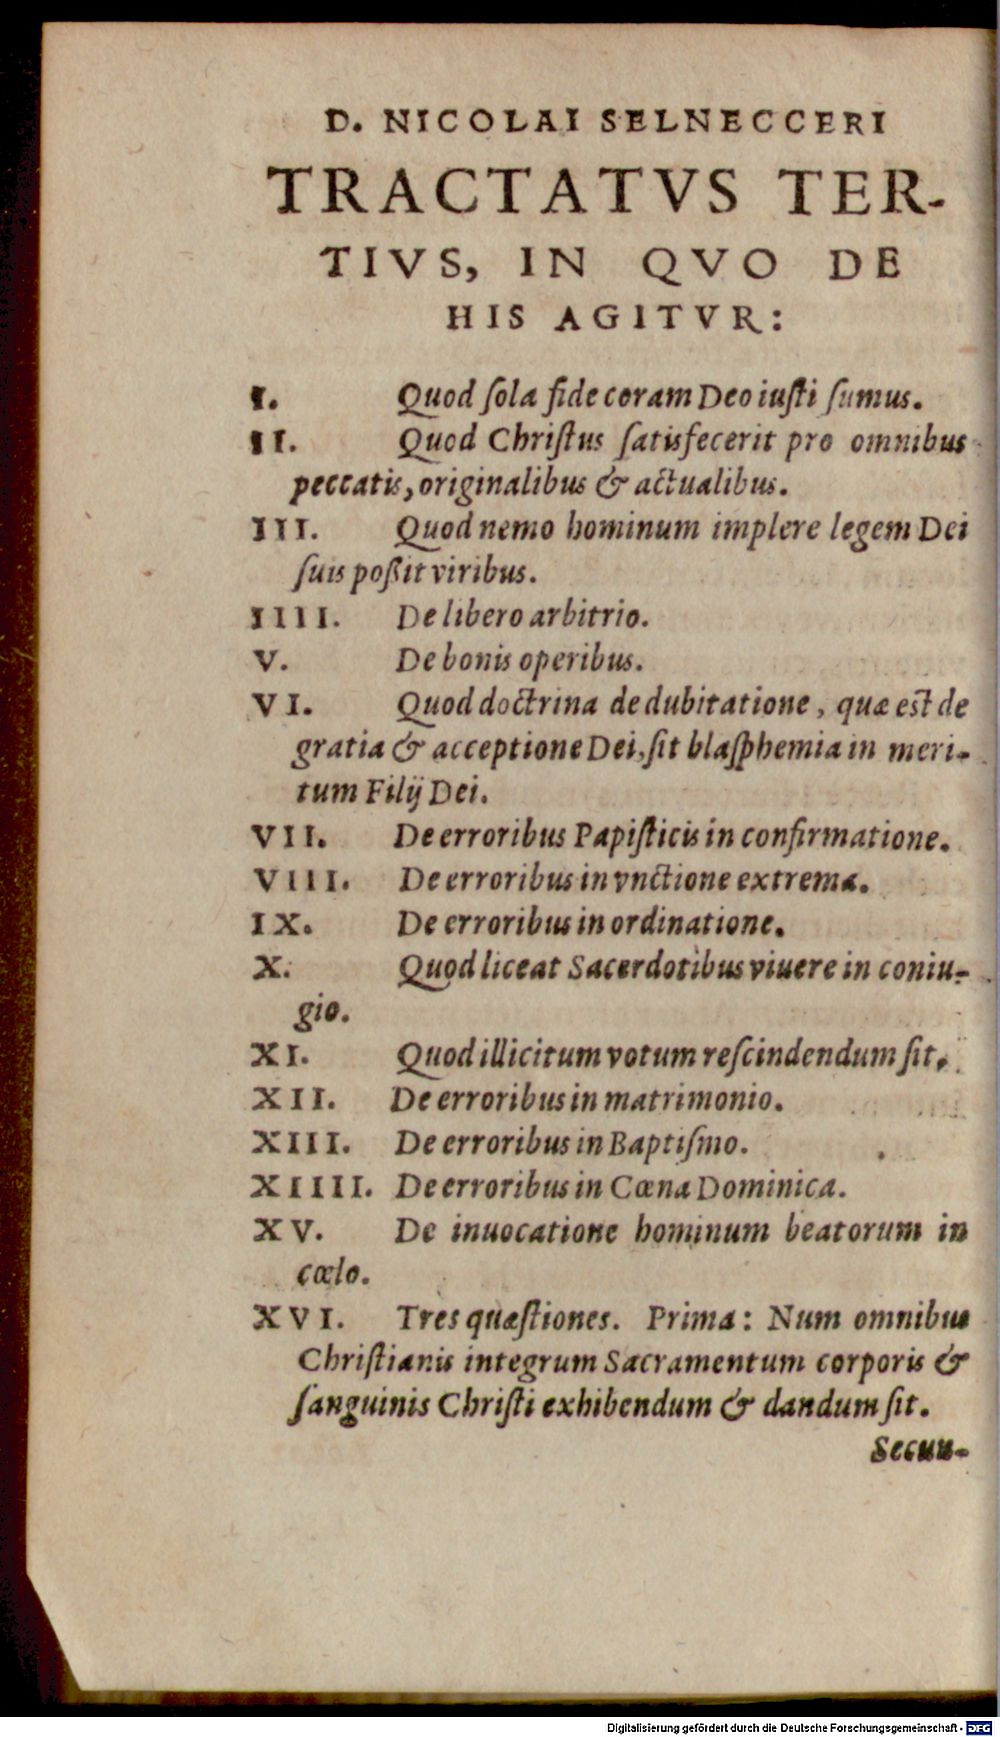 D. NICOLAI SELNECCERI
TRACTATVS TER-
TIVS, IN QVO DE
HIS AGITVR:
I. Quod ſola fide coram Deo iuſti ſumus.
II. Quod Chriſtus ſatisfecerit pro omnibus
peccatis, originalibus & actualibus.
III. Quod nemo hominum implere legem Dei
ſuis poßit viribus.
IIII. De libero arbitrio.
V. De bonis operibus.
VI. Quod doctrina de dubitatione, quæ est de
gratia & acceptione Dei, ſit blaſphemia in meri-
tum Filij Dei.
VII. De erroribus Papiſticis in confirmatione.
VIII. De erroribus in vnctione extrema.
IX. De erroribus in ordinatione.
X. Quod liceat Sacerdotibus viuere in coniu-
gio.
XI. Quod illicitum votum reſcindendum ſit.
XII. De erroribus in matrimonio.
XIII. De erroribus in Baptiſmo.
XIIII. De erroribus in Cœna Dominica.
XV. De inuocatione hominum beatorum in
cœlo.
XVI. Tres quæſtiones. Prima: Num omnibus
Chriſtianis integrum Sacramentum corporis &
ſanguinis Chriſti exhibendum & dandum ſit.
Secun-
Digitalisierung gefördert durch die Deutsche Forschungsgemeinschaft - DFG